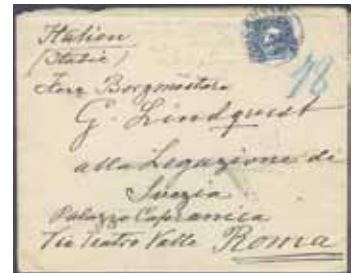 Italien
(Italie)
Herr Borgmästare
G. Lindquist
alla Legazione di
Svezia
Palazzo Capranica
Via Teatro Valle Roma